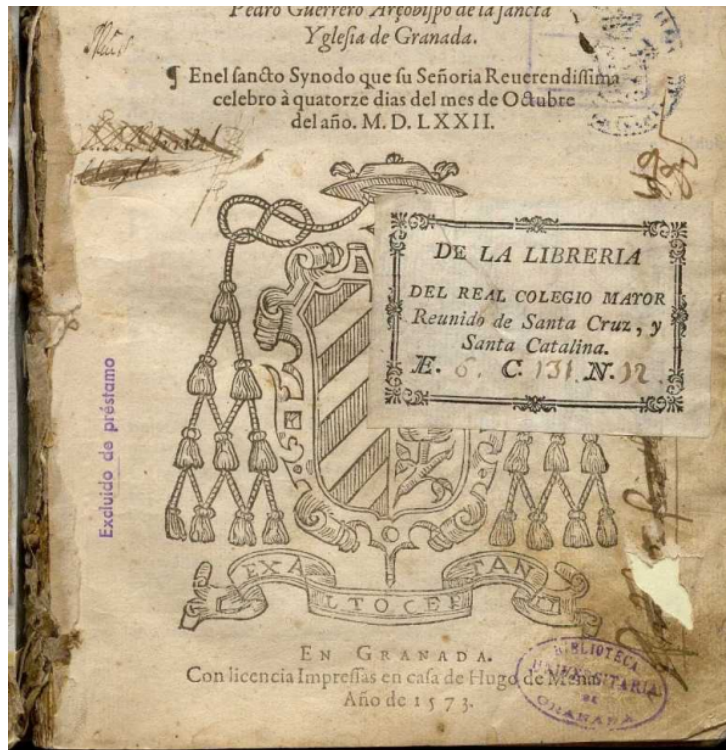 Pedro Guerrero Arçobispo de la sancta
Yglesia de Granada.
¶ Enel sancto Synodo que su Señoria Reuerendissima
celebro à quatorze dias del mes de Octubre
del año. M. D. LXXII.
DE LA LIBRERIA
DEL REAL COLEGIO MAYOR
Reunido de Santa Cruz, y
Santa Catalina.
E. 6. C. 131. N. 12.
Excluido de préstamo
EXA LTO CEP TAN
EN GRANADA.
Con licencia Impressas en casa de Hugo de Mena.
Año de 1573.
BIBLIOTECA
UNIVERSITARIA
DE
GRANADA